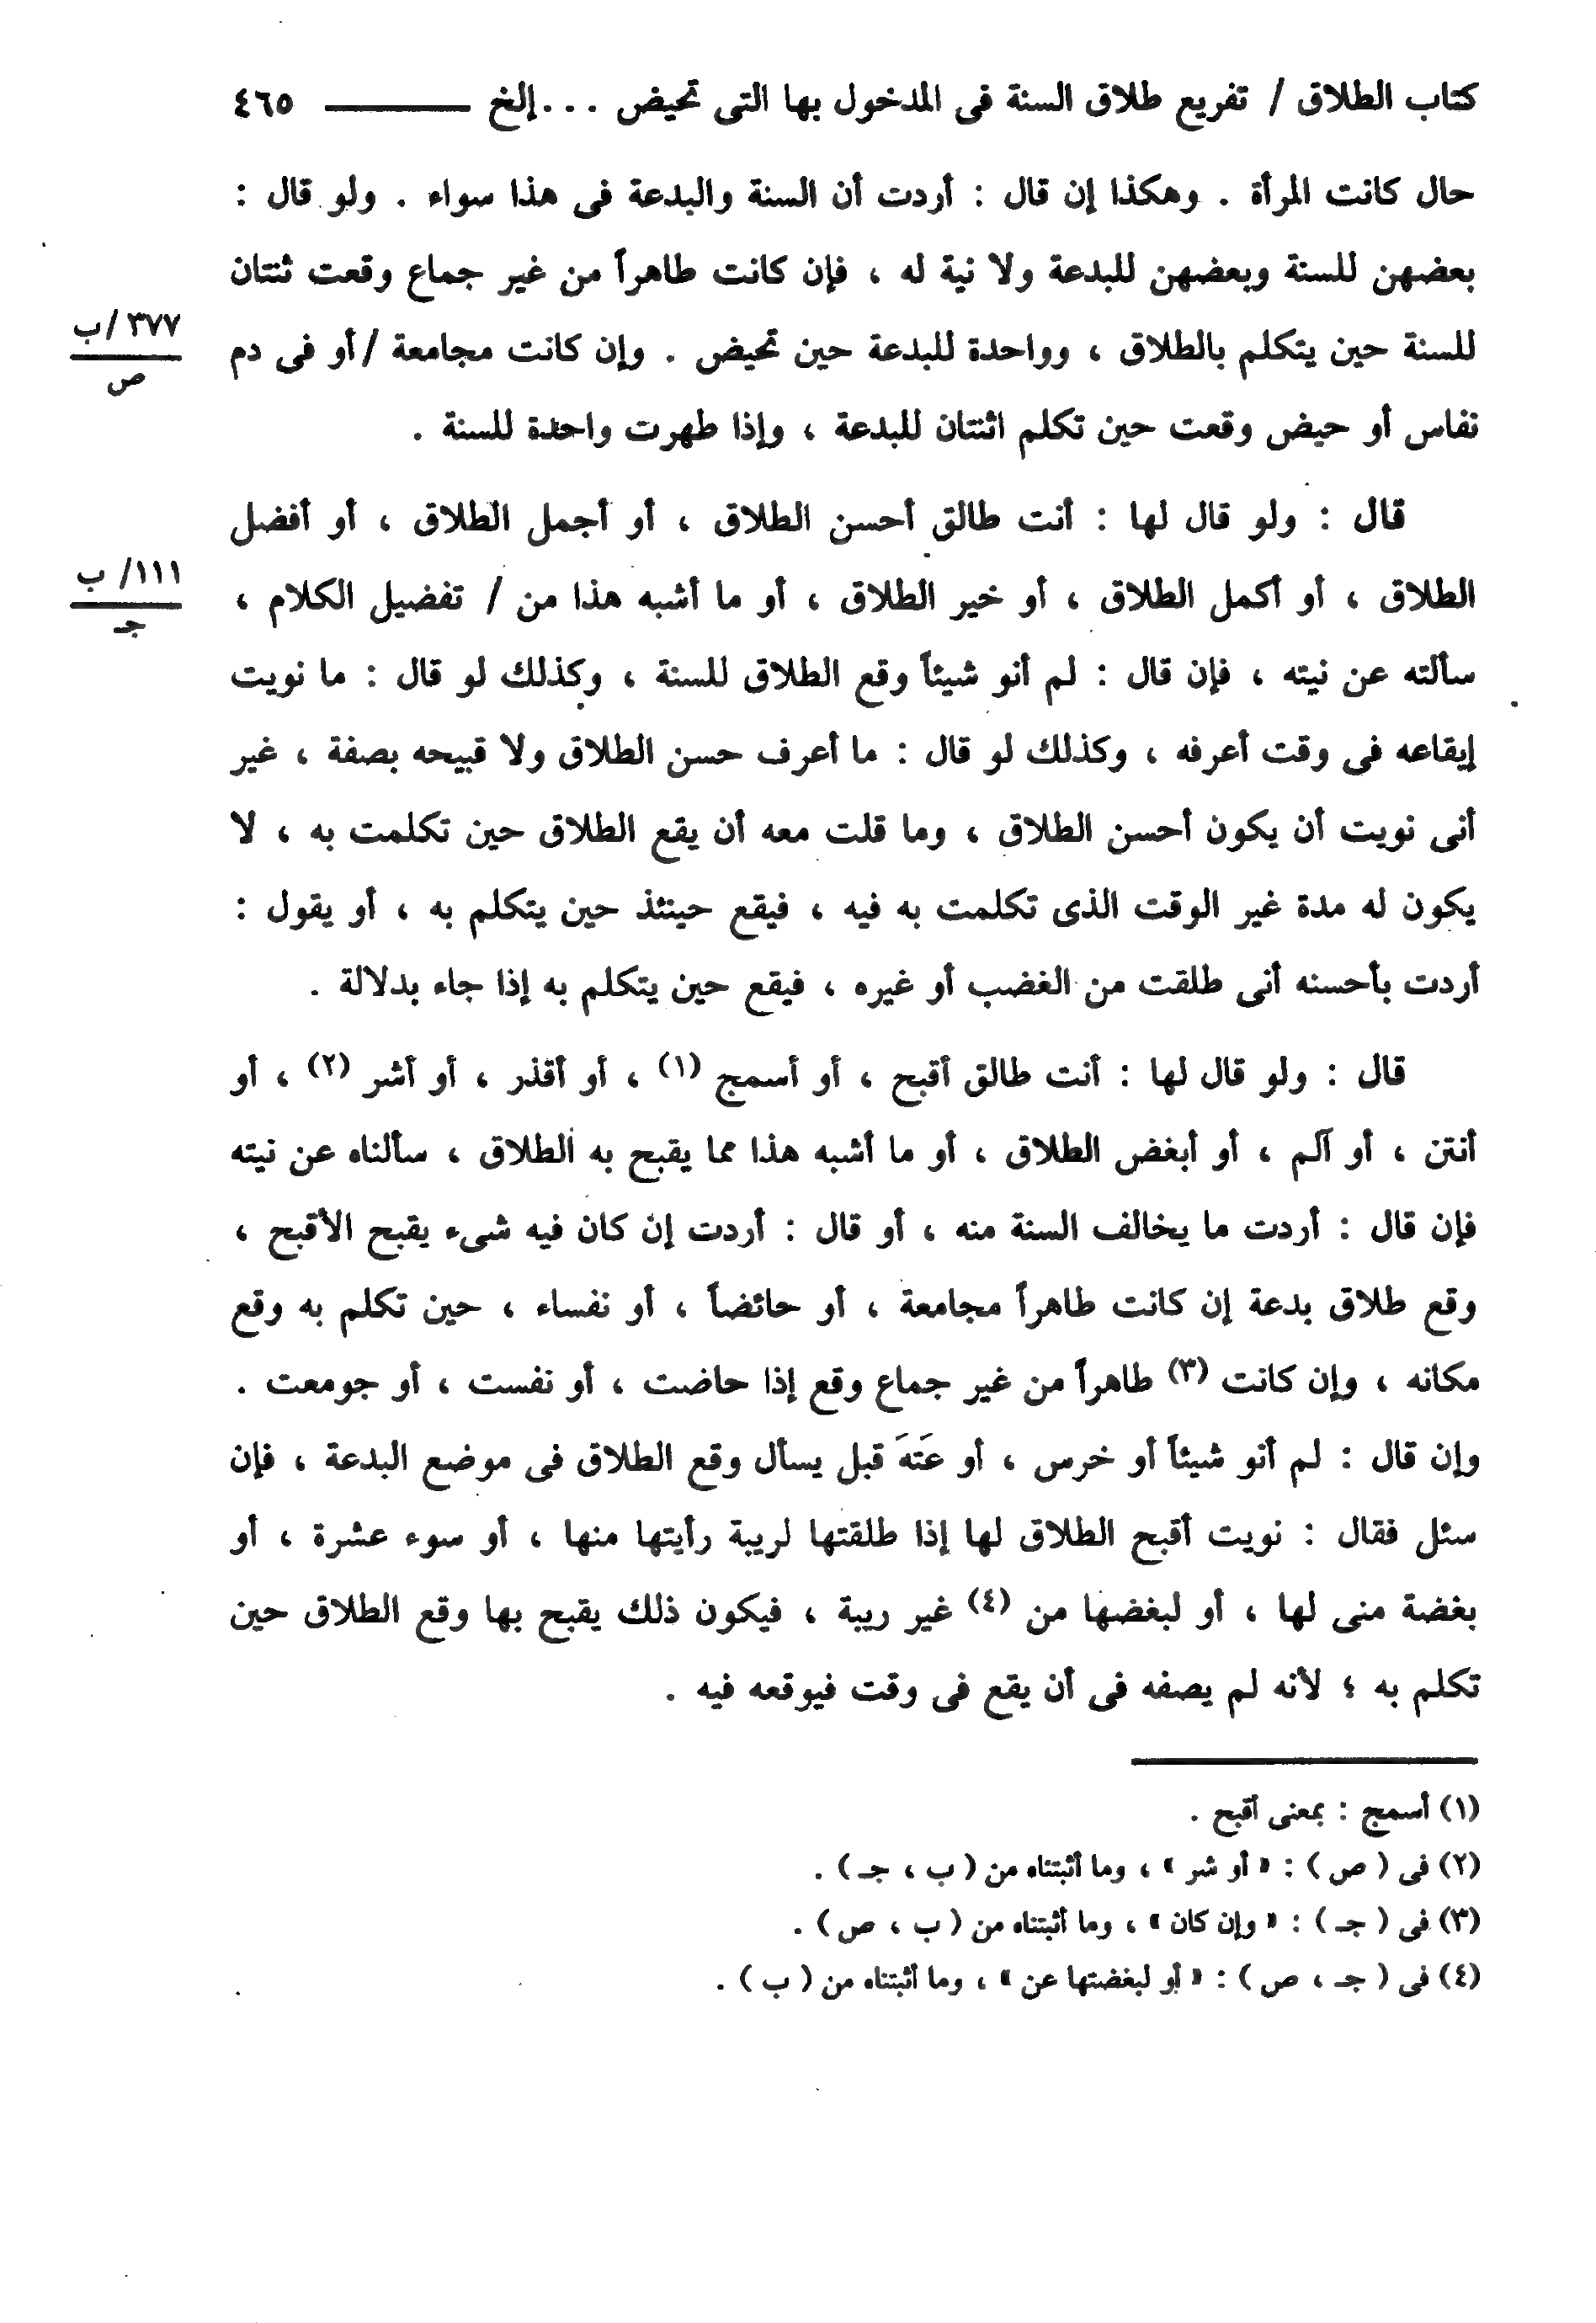 كتاب الطلاق / تفريع طلاق السنة فى المدخول بها التى تحيض . . . إلخ ــــــــ ٤٦٥
حال كانت المرأة . وهكذا إن قال : أردت أن السنة والبدعة فى هذا سواء . ولو قال :
بعضهن للسنة وبعضهن للبدعة ولا نية له ، فإن كانت طاهراً من غير جماع وقعت ثنتان
للسنة حين يتكلم بالطلاق ، وواحدة للبدعة حين تحيض . وإن كانت مجامعة / أو فى دم
٣٧٧ / ب
ص
نفاس أو حيض وقعت حين تكلم اثنتان للبدعة ، وإذا طهرت واحدة للسنة .
قال : ولو قال لها : أنت طالق أحسن الطلاق ، أو أجمل الطلاق ، أو أفضل
الطلاق ، أو أكمل الطلاق ، أو خير الطلاق ، أو ما أشبه هذا من / تفضيل الكلام ،
١١١ / ب
جـ
سألته عن نيته ، فإن قال : لم أنو شيئاً وقع الطلاق للسنة ، وكذلك لو قال : ما نويت
إيقاعه فى وقت أعرفه ، وكذلك لو قال : ما أعرف حسن الطلاق ولا قبيحه بصفة ، غير
أنى نويت أن يكون أحسن الطلاق ، وما قلت معه أن يقع الطلاق حين تكلمت به ، لا
يكون له مدة غير الوقت الذى تكلمت به فيه ، فيقع حينئذ حين يتكلم به ، أو يقول :
أردت بأحسنه أنى طلقت من الغضب أو غيره ، فيقع حين يتكلم به إذا جاء بدلالة .
قال : ولو قال لها : أنت طالق أقبح ، أو أسمج (١) ، أو أقذر ، أو أشر (٢) ، أو
أنتن ، أو آلم ، أو أبغض الطلاق ، أو ما أشبه هذا مما يقبح به الطلاق ، سألناه عن نيته
فإن قال : أردت ما يخالف السنة منه ، أو قال : أردت إن كان فيه شىء يقبح الأقبح ،
وقع طلاق بدعة إن كانت طاهراً مجامعة ، أو حائضاً ، أو نفساء ، حين تكلم به وقع
مكانه ، وإن كانت (٣) طاهراً من غير جماع وقع إذا حاضت ، أو نفست ، أو جومعت .
وإن قال : لم أنو شيئاً أو خرس ، أو عَتَهَ قبل يسأل وقع الطلاق فى موضع البدعة ، فإن
سئل فقال : نويت أقبح الطلاق لها إذا طلقتها لريبة رأيتها منها ، أو سوء عشرة ، أو
بغضة منى لها ، أو لبغضها من (٤) غير ريبة ، فيكون ذلك يقبح بها وقع الطلاق حين
تكلم به ؛ لأنه لم يصفه فى أن يقع فى وقت فيوقعه فيه .
(١) أسمج : بمعنى أقبح .
(٢) فى ( ص ) : « أو شر » ، وما أثبتناه من ( ب ، جـ ) .
(٣) فى ( جـ ) : « وإن كان » ، وما أثبتناه من ( ب ، ص ) .
(٤) فى ( جـ ، ص ) : « أو لبغضتها عن » ، وما أثبتناه من ( ب ) .